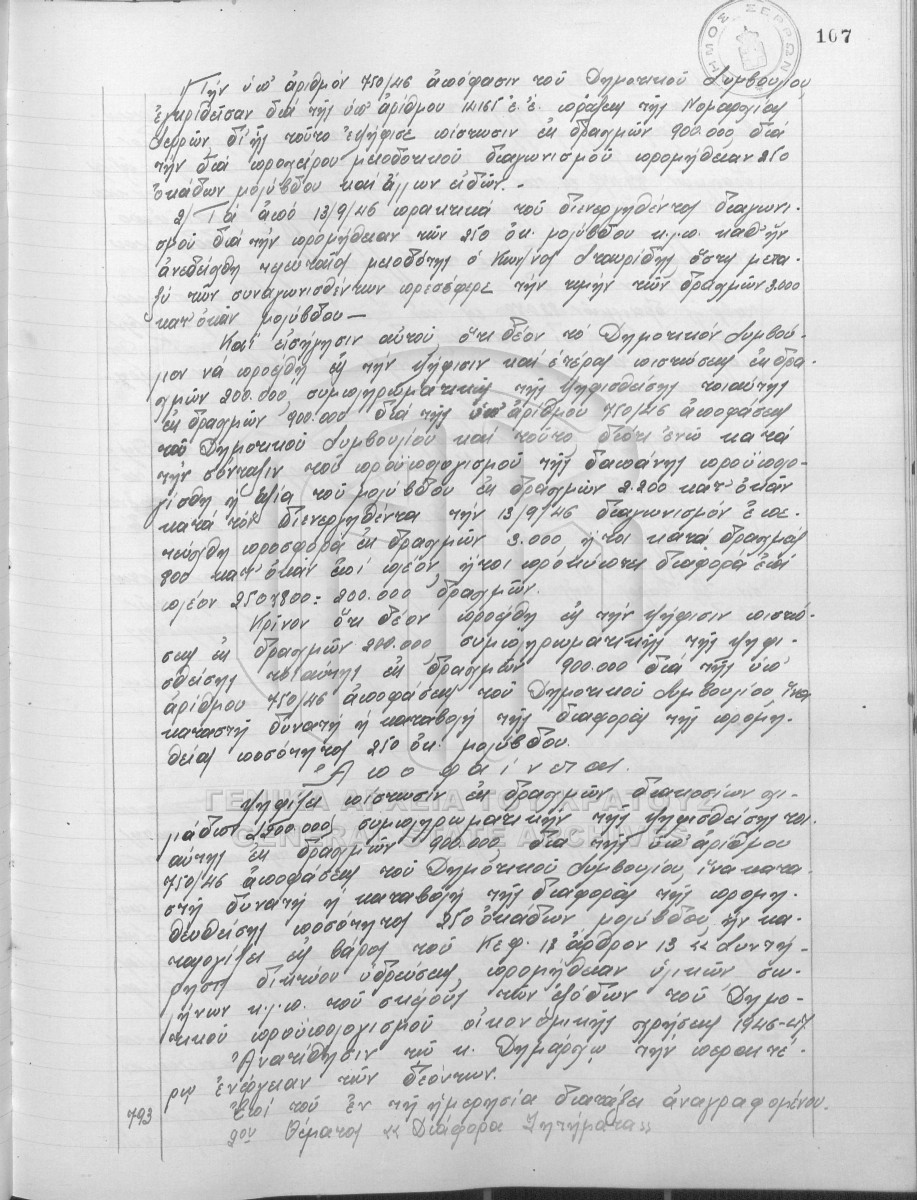 107
ΔΗΜΟΣ ΣΕΡΡΩΝ
1/ Τήν ὑπ' ἀριθμόν 750/46 ἀπόφασιν τοῦ Δημοτικοῦ Συμβουλίου
ἐγκριθεῖσαν διά τῆς ὑπ' ἀριθμου ἐ.ἔ. πράξεως τῆς Νομαρχίας
Σερρῶν δι' ἧς τοῦτο ἐψήφισε πίστωσιν ἐκ δραχμῶν 900.000 διά
τήν διά προχείρου μειοδοτικοῦ διαγωνισμοῦ προμήθειαν 250
ὀκάδων μολύβδου καί ἄλλων εἰδῶν. -
2/ Τά ἀπό 13/9/46 πρακτικά τοῦ διενεργηθέντος διαγωνι-
σμοῦ διά τήν προμήθειαν τῶν 250 ὀκ. μολύβδου κ.λ.π. καθ' ἥν
ἀνεδείχθη τελευταῖος μειοδότης ὁ Κων/νος Σταυρίδης ὅστις μετα-
ξύ τῶν συναγωνισθέντων προσέφερε τήν τιμήν τῶν δραχμῶν 3.000
κατ' ὀκᾶν μολύβδου —
Καί εἰσήγησιν αὐτοῦ, ὅτι δέον τό Δημοτικόν Συμβού-
λιον νά προέλθῃ εἰς τήν ψήφισιν καί ἑτέρας πιστώσεως ἐκ δρα-
χμῶν 200.000 συμπληρωματικῆς τῆς ψηφισθείσης τοιαύτης
ἐκ δραχμῶν 900.000 διά τῆς ὑπ' ἀριθμου 750/46 ἀποφάσεως
τοῦ Δημοτικοῦ Συμβουλίου καί τοῦτο διότι ἐνῶ κατά
τήν σύνταξιν τοῦ προϋπολογισμοῦ τῆς δαπάνης προϋπολο-
γίσθη ἡ ἀξία τοῦ μολύβδου ἐκ δραχμῶν 2.200 κατ' ὀκᾶν
κατά τόν διενεργηθέντα τήν 13/9/46 διαγωνισμόν ἐπε-
τεύχθη προσφορά ἐκ δραχμῶν 3.000 ἤτοι κατά δραχμάς
800 κατ' ὀκᾶν ἐπί πλέον, ἤτοι προκύπτει διαφορά ἐπί
πλέον 250Χ800= 200.000 δραχμῶν.
Κρῖνον ὅτι δέον προέλθῃ εἰς τήν ψήφισιν πιστώ-
σεως ἐκ δραχμῶν 200.000 συμπληρωματικῆς τῆς ψηφι-
σθείσης τοιαύτης ἐκ δραχμῶν 900.000 διά τῆς ὑπ'
ἀριθμου 750/46 ἀποφάσεως τοῦ Δημοτικοῦ Συμβουλίου, ἵνα
καταστῇ δυνατή ἡ καταβολή τῆς διαφορᾶς τῆς προμη-
θείας ποσότητος 250 ὀκ. μολύβδου.
Ἀποφαίνεται
Ψηφίζει πίστωσιν ἐκ δραχμῶν διακοσίων χι-
λιάδων (200.000) συμπληρωματικήν τῆς ψηφισθείσης τοι-
αύτης ἐκ δραχμῶν 900.000 διά τῆς ὑπ' ἀριθμου
750/46 ἀποφάσεως τοῦ Δημοτικοῦ Συμβουλίου, ἵνα κατα-
στῇ δυνατή ἡ καταβολή τῆς διαφορᾶς τῆς προμη-
θευθείσης ποσότητος 250 ὀκάδων μολύβδου, ἥν κα-
ταλογίζει εἰς βάρος τοῦ Κεφ. 18 ἄρθρον 13 << Συντή-
ρησις δικτύου ὑδρεύσεως, προμήθειαν ὑλικῶν σω-
λήνων κ.λ.π. τοῦ σκέλους τῶν ἐξόδων τοῦ Δημο-
τικοῦ προϋπολογισμοῦ οἰκονομικῆς χρήσεως 1946-47
Ἀνατίθησιν τῷ κ. Δημάρχῳ τήν περαιτέ-
ρω ἐνέργειαν τῶν δεόντων.
793 Ἐπί τοῦ ἐν τῇ ἡμερησίᾳ διατάξει ἀναγραφομένου
2ου θέματος << Διάφορα Ζητήματα>>
ΓΕΝΙΚΑ ΑΡΧΕΙΑ ΤΟΥ ΚΡΑΤΟΥΣ
GENERAL STATE ARCHIVES